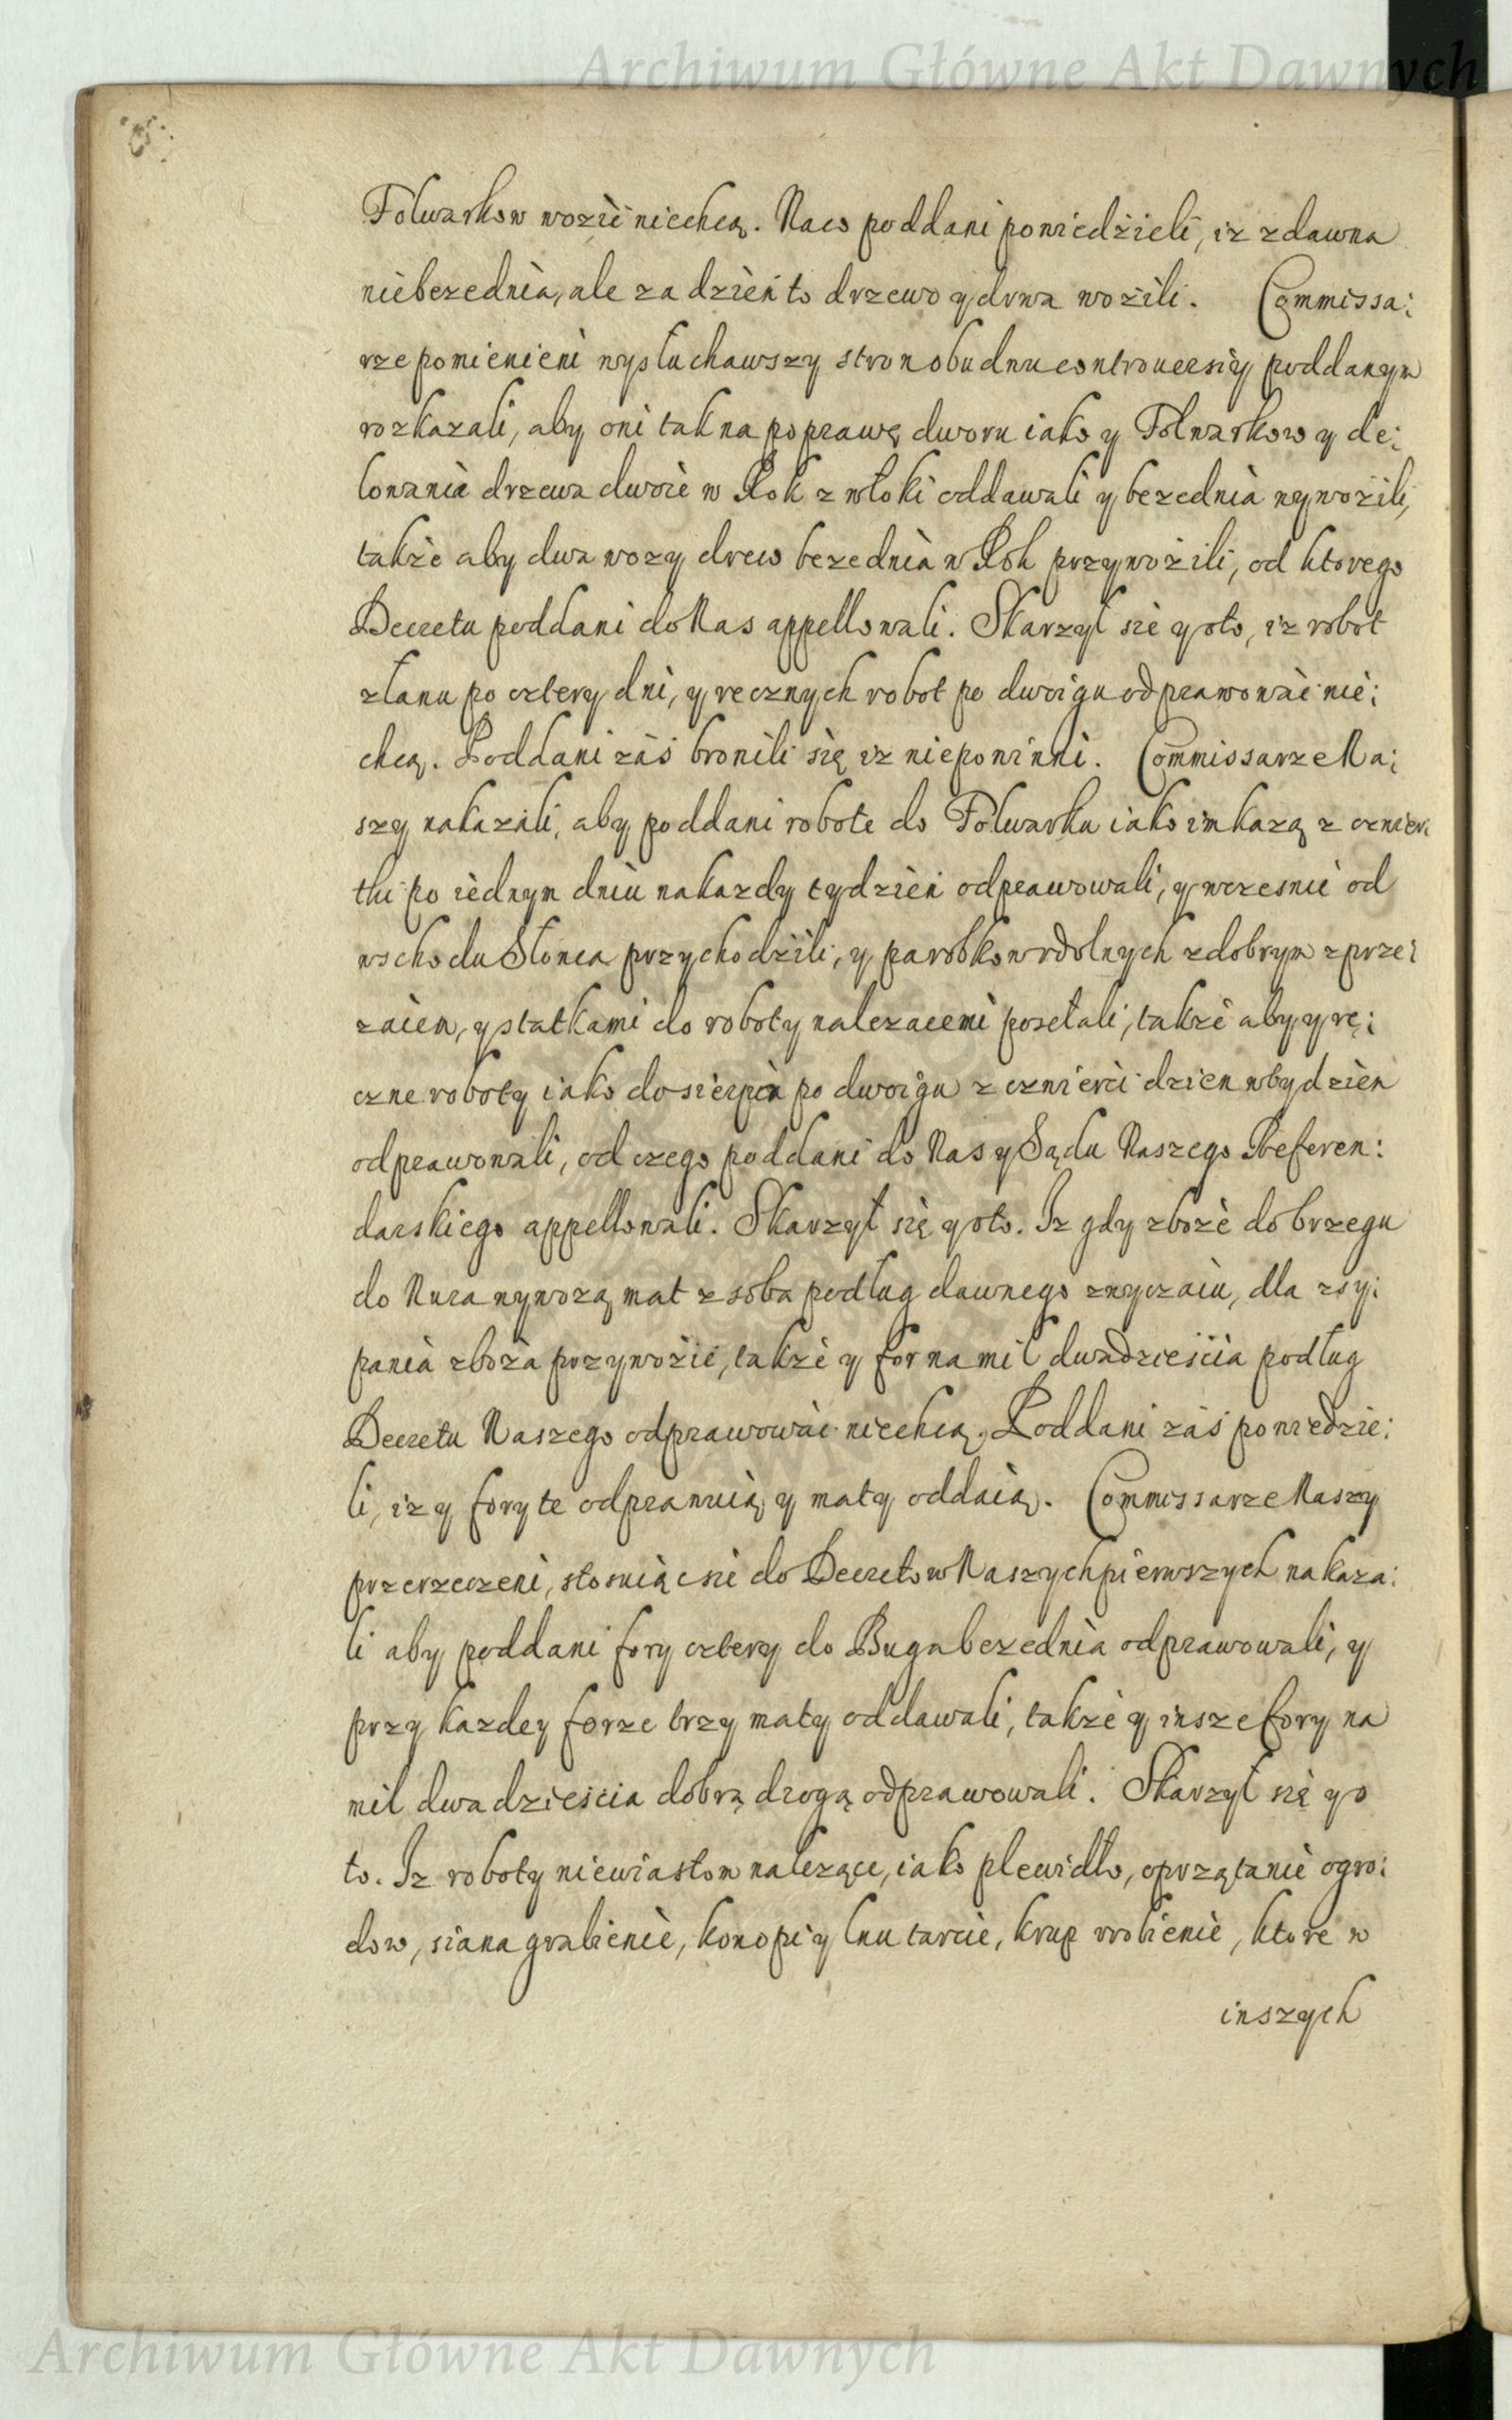 Archiwum Główne Akt Dawnych
Folwarkow wozić niechcą. Naco poddani powiedzieli, iz zdawna
niebezednia, ale za dzień to drzewo y drwa wozili. Commissa:
rze pomienieni wysłuchawszy stron obudwu controuersiy poddanym
rozkazali, aby oni tak na poprawę dworu iako y Folwarkow y de:
lowania drzewa dwoie w Rok z włoki oddawali y bezednia wywozili,
także aby dwa wozy drew bezednia w Rok przywozili, od ktorego
Decretu poddani do Nas appellowali. Skarzył się y oto, iz robot
złanu po cztery dni, y recznych robot po dwoigu odprawować nie:
chcą. Poddani zaś bronili się iz niepowinni. Commissarze Na:
szy nakazali, aby poddani robote do Folwarku iako im kazą z czwier:
tki po iednym dniu nakazdy tydzień odprawowali, y wczesnie od
wschodu Słonca przychodzili, y parobkow rdolnych z dobrym zprze:
zaiem, y statkami do roboty nalezacemi posełali, także aby y rę:
czne roboty iako do sierpia po dwoigu z czwierci dzien wtydzien
odprawowali, od czego poddani do Nas y Sądu Naszego Referen:
darskiego appellowali. Skarzył się y oto. Iz gdy zboże do brzegu
do Nura wywozą mat z soba podług dawnego zwyczaiu, dla zsy:
pania zboża przywozić, także y for na mil dwadziescia podług
Decretu Naszego odprawować niechcą. Poddani zaś powiedzie:
li, iz y fory te odprawuią y maty oddaią. Commissarze Naszy
przerzeczeni, stosuiąc sie do Decretow Naszych pierwszych nakaza:
li aby poddani fory cztery do Buga bezednia odprawowali, y
przy kazdey forze trzy maty oddawali, także y insze fory na
mil dwadziescia dobrą drogą odprawowali. Skarzył się y o
to. Iz roboty niewiastom nalezące, iako plewidło, oprzątanie ogro:
dow, siana grabienie, konopi y lnu tarcie, krup rrobienie, ktore w
inszych
Archiwum Główne Akt Dawnych